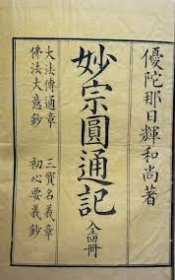 優陀那日輝和尚著
妙宗圓通記
全四冊
大法傳通章
佛法大意鈔
三實名義章
初心要義鈔